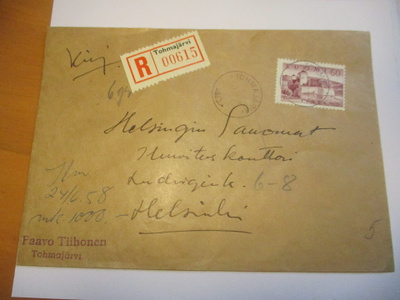 Kirj.
Tohmajärvi
R 00615
Helsingin Sanomat
konttori
Ludvigink. 6-8
Helsinki
24/6.58
mk 1000.-
5
Paavo Tiihonen
Tohmajärvi